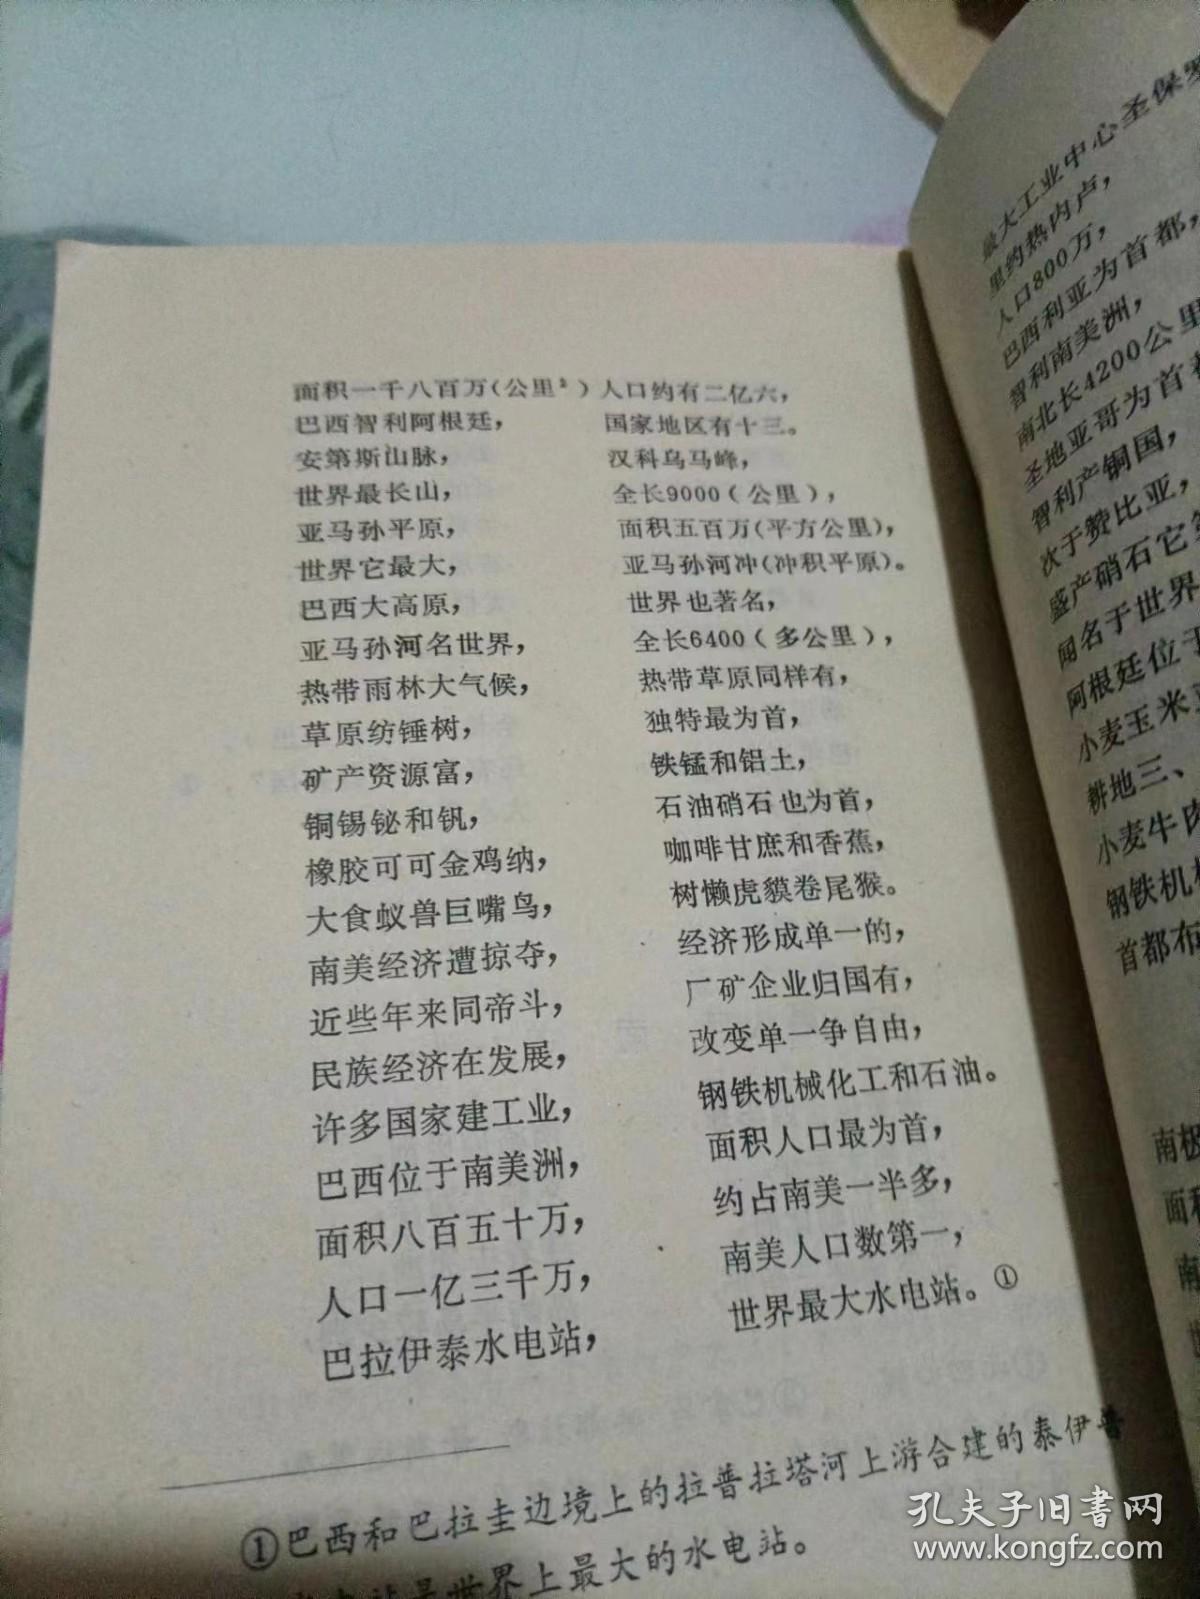 面积一千八百万(公里²)人口约有二亿六,
巴西智利阿根廷, 国家地区有十三。
安第斯山脉, 汉科乌马峰,
世界最长山, 全长9000(公里),
亚马孙平原, 面积五百万(平方公里),
世界它最大, 亚马孙河冲(冲积平原)。
巴西大高原, 世界也著名,
亚马孙河名世界, 全长6400(多公里),
热带雨林大气候, 热带草原同样有,
草原纺锤树, 独特最为首,
矿产资源富, 铁锰和铝土,
铜锡铋和钒, 石油硝石也为首,
橡胶可可金鸡纳, 咖啡甘庶和香蕉,
大食蚁兽巨嘴鸟, 树懒虎貘卷尾猴。
南美经济遭掠夺, 经济形成单一的,
近些年来同帝斗, 厂矿企业归国有,
民族经济在发展, 改变单一争自由,
许多国家建工业, 钢铁机械化工和石油。
巴西位于南美洲, 面积人口最为首,
面积八百五十万, 约占南美一半多,
人口一亿三千万, 南美人口数第一,
巴拉伊泰水电站, 世界最大水电站。①
①巴西和巴拉圭边境上的拉普拉塔河上游合建的泰伊普
是世界上最大的水电站。
最大工业中心圣保罗
里约热内卢,
人口800万,
巴西利亚为首都,
智利南美洲,
南北长4200公里
圣地亚哥为首都
智利产铜国,
次于赞比亚,
盛产硝石它
闻名于世界
阿根廷位于
小麦玉米
耕地三、
小麦牛肉
钢铁机械
首都布
南极
面积
南
世
孔夫子旧书网
www.kongfz.com